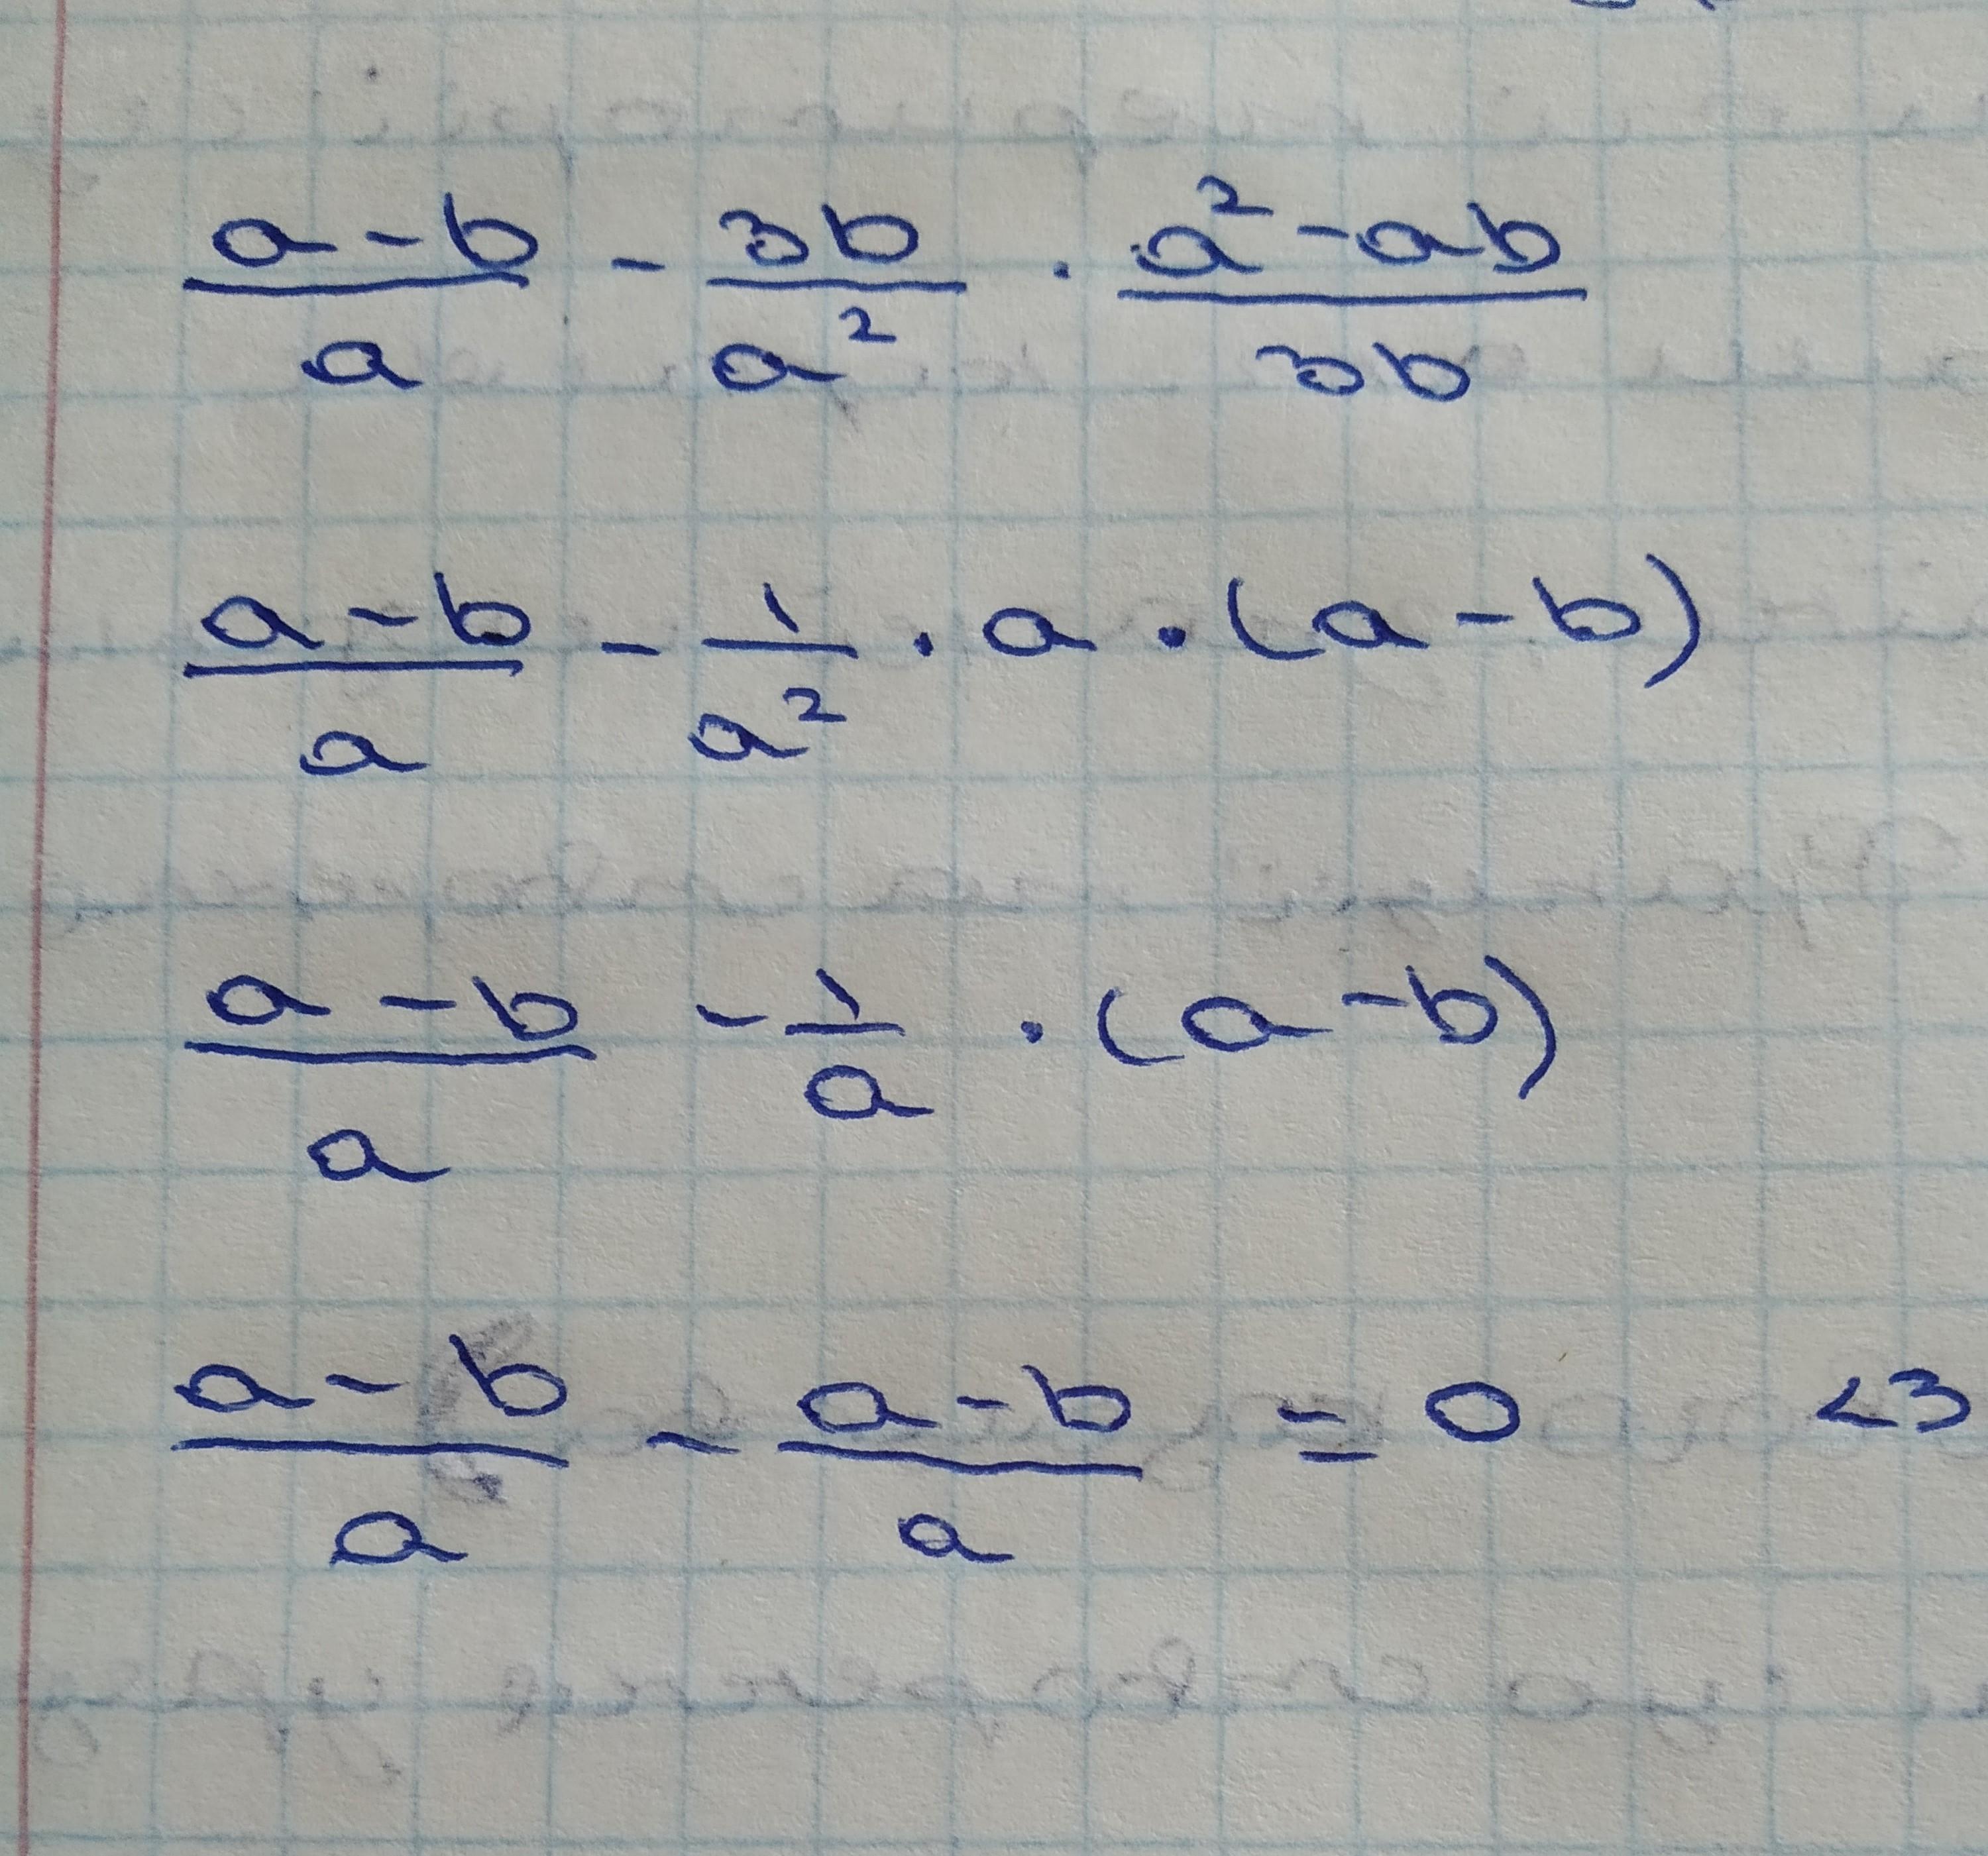 (a-b)/a - 3b/a² · (a²-ab)/3b
(a-b)/a - 1/a² · a · (a-b)
(a-b)/a - 1/a · (a-b)
(a-b)/a - (a-b)/a = 0 <3